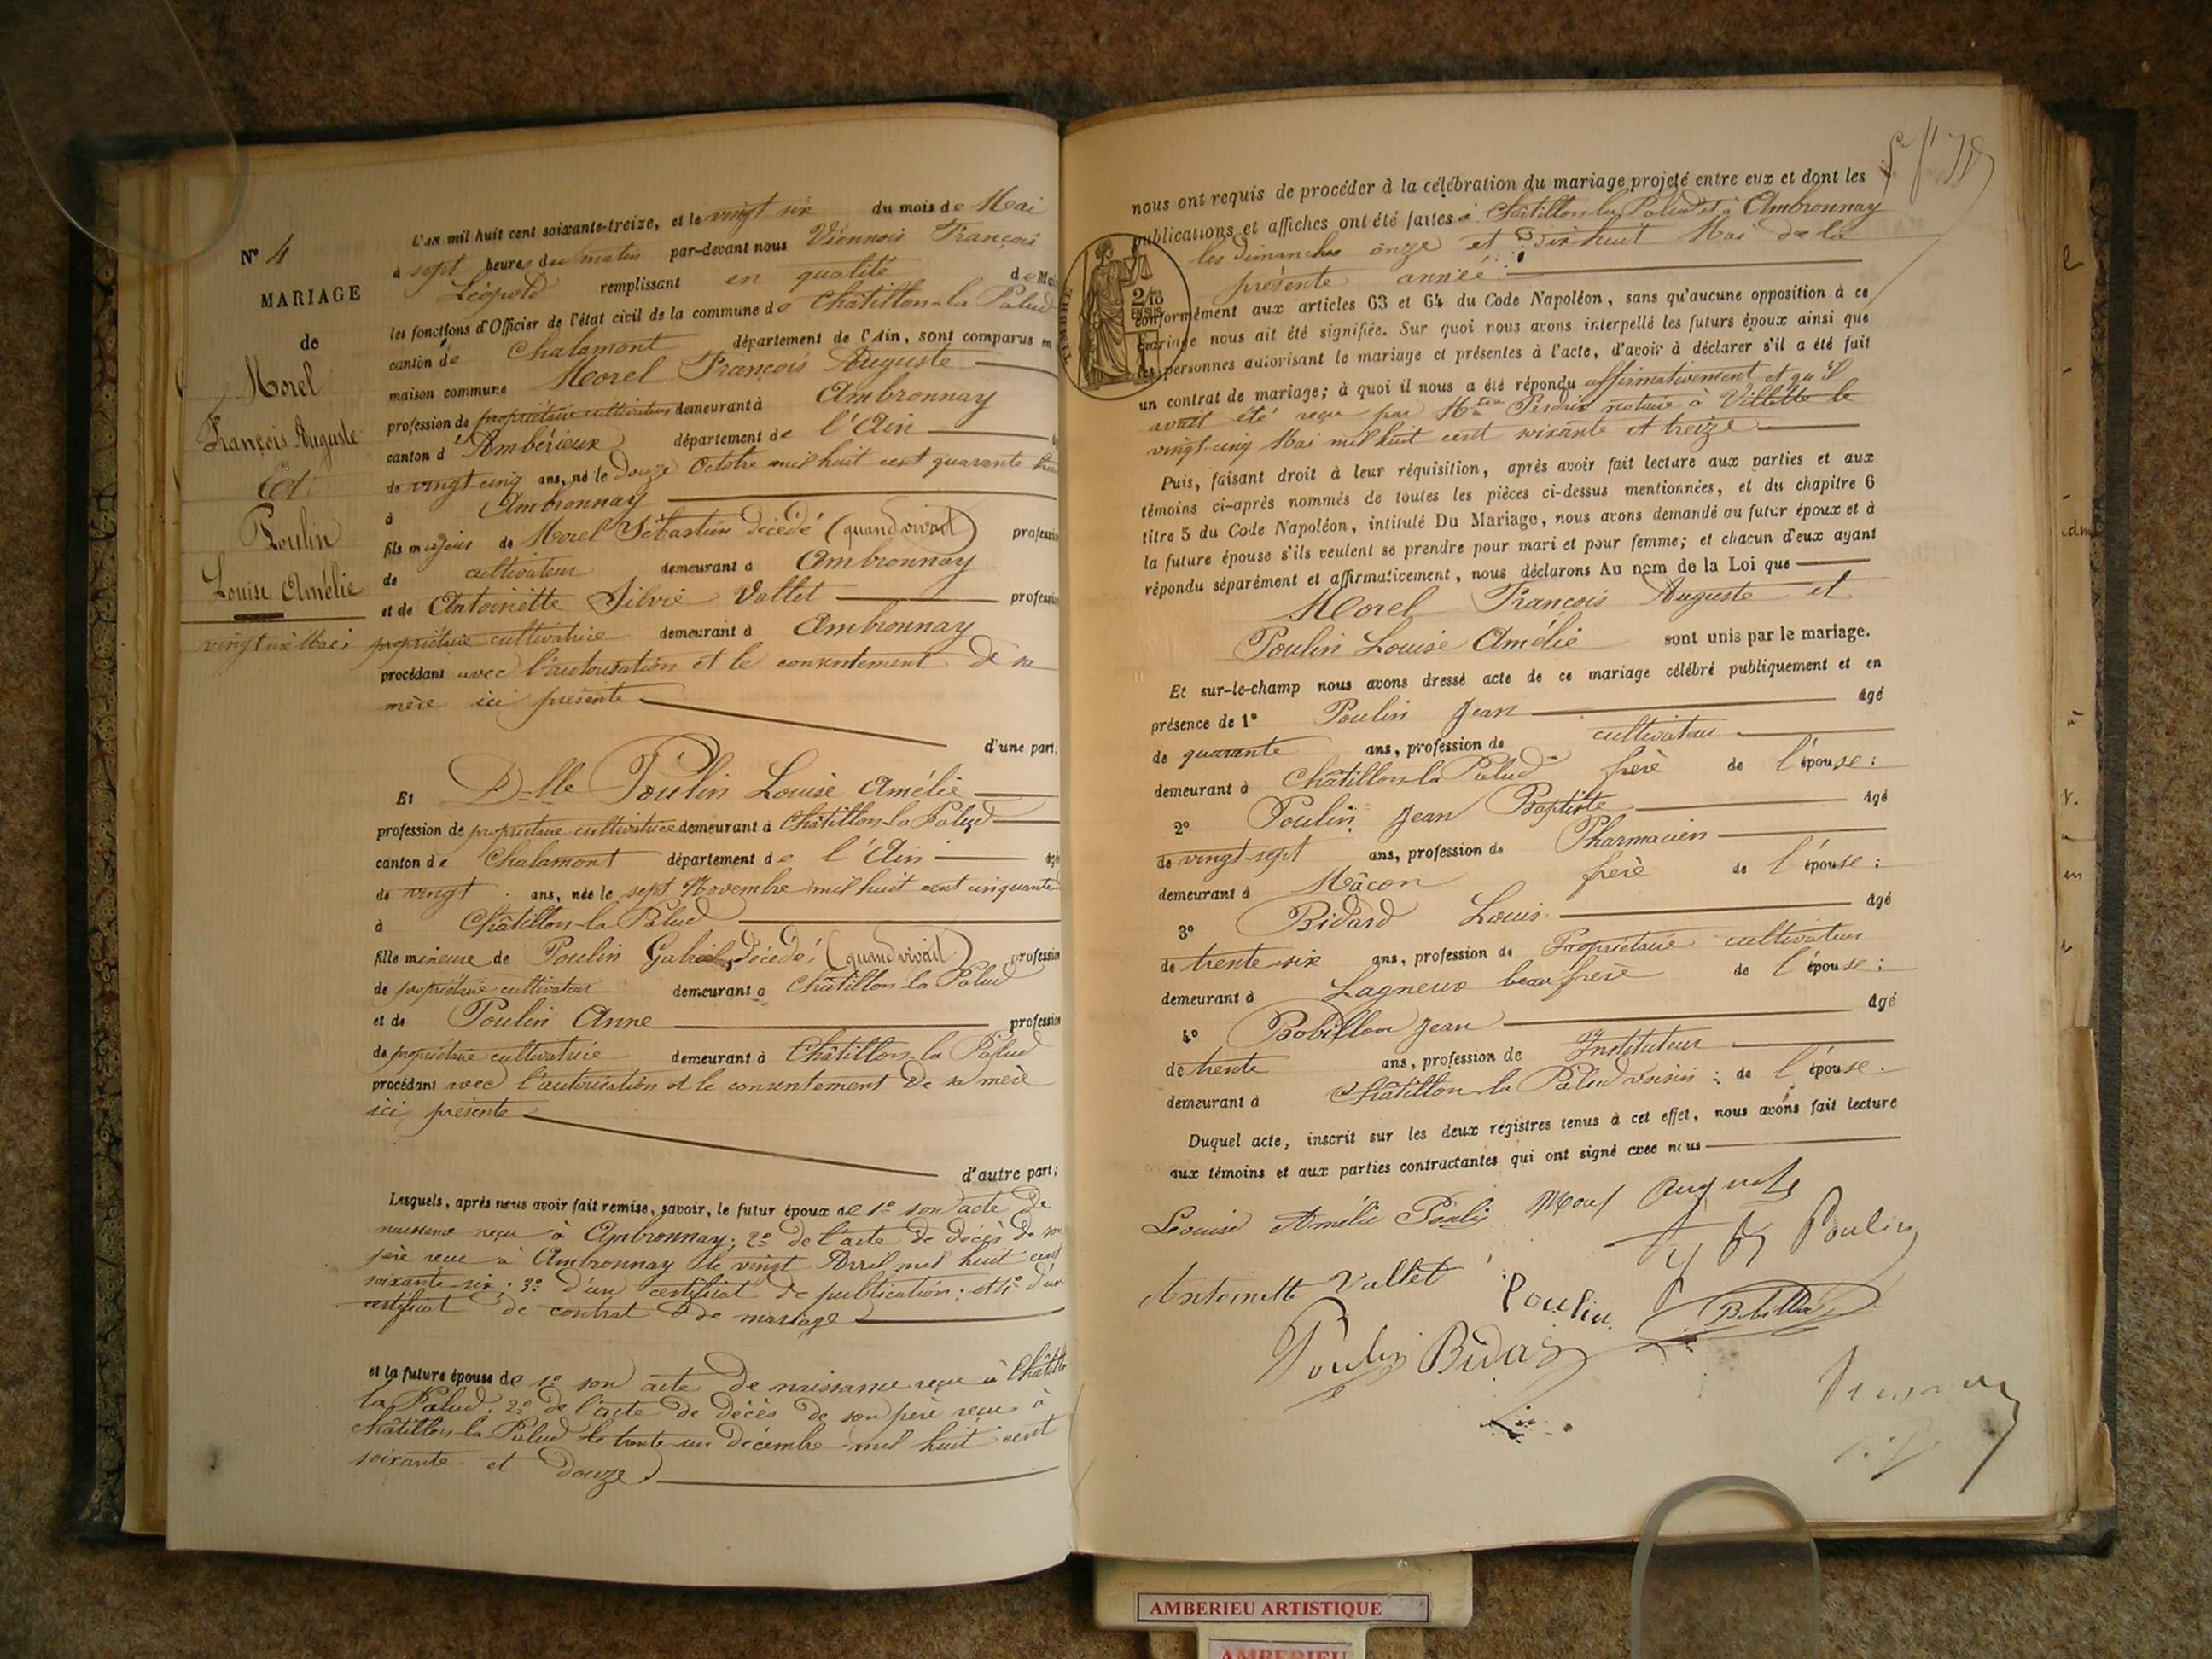 N° 4
MARIAGE
de
Morel
François Auguste
Et
Poulin
Louise Amélie
vingt six Mai
L'an mil huit cent soixante-treize, et le vingt six du mois de Mai
à sept heures du matin par-devant nous Viennois François
Léopold remplissant en qualité de
les fonctions d'Officier de l'état civil de la commune de Châtillon-la Palud
canton de Chalamont département de l'Ain, sont comparus en
maison commune Morel François Auguste
profession de propriétaire cultivateur demeurant à Ambronnay
canton d'Ambérieux département de l'Ain
de vingt-cinq ans, né le douze Octobre mil huit cent quarante
à Ambronnay
fils majeur de Morel Sébastien décédé (quand vivait) profession
de cultivateur demeurant à Ambronnay
et de Antoinette Silvie Vallet profession
propriétaire cultivatrice demeurant à Ambronnay
procédant avec l'autorisation et le consentement de sa
mère ici présente
d'une part;
Et D-lle Poulin Louise Amélie
profession de propriétaire cultivatrice demeurant à Châtillon-la Palud
canton de Chalamont département de l'Ain âgé
de vingt ans, née le sept Novembre mil huit cent cinquante
à Châtillon-la Palud
fille mineure de Poulin Gabriel, décédé; (quand vivait) profession
de propriétaire cultivateur demeurant à Châtillon-la Palud
et de Poulin Anne profession
de propriétaire cultivatrice demeurant à Châtillon-la Palud
procédant avec l'autorisation et le consentement de sa mère
ici présente
d'autre part;
Lesquels, après nous avoir fait remise, savoir, le futur époux de 1° son acte de
naissance reçu à Ambronnay; 2° de l'acte de décès de son
père reçu à Ambronnay le vingt Avril mil huit cent
soixante-six; 3° d'un certificat de publication; et 4° d'un
certificat de contrat de mariage
et la future épouse de 1° son acte de naissance reçu à Châtillon
la Palud. 2° de l'acte de décès de son père reçu à
Châtillon-la Palud le trente un Décembre mil huit cent
soixante et douze
nous ont requis de procéder à la célébration du mariage projeté entre eux et dont les
publications et affiches ont été faites à Châtillon-la Palud et à Ambronnay
les Dimanches onze et dix huit Mai de la
présente année
TIMBRE
conformément aux articles 63 et 64 du Code Napoléon, sans qu'aucune opposition à ce
mariage nous ait été signifiée. Sur quoi nous avons interpellé les futurs époux ainsi que
les personnes autorisant le mariage et présentes à l'acte, d'avoir à déclarer s'il a été fait
un contrat de mariage; à quoi il nous a été répondu affirmativement et qu'il
avait été reçu par Mtre Perdrix notaire à Villette le
vingt-cinq Mai mil huit cent soixante et treize
Puis, faisant droit à leur réquisition, après avoir fait lecture aux parties et aux
témoins ci-après nommés de toutes les pièces ci-dessus mentionnées, et du chapitre 6
titre 5 du Code Napoléon, intitulé Du Mariage, nous avons demandé au futur époux et à
la future épouse s'ils veulent se prendre pour mari et pour femme; et chacun d'eux ayant
répondu séparément et affirmativement, nous déclarons Au nom de la Loi que
Morel François Auguste et
Poulin Louise Amélie sont unis par le mariage.
Et sur-le-champ nous avons dressé acte de ce mariage célébré publiquement et en
présence de 1° Poulin Jean âgé
de quarante ans, profession de cultivateur
demeurant à Châtillon-la Palud frère de l'épouse;
2° Poulin Jean Baptiste âgé
de vingt-sept ans, profession de Pharmacien
demeurant à Mâcon frère de l'épouse;
3° Bidard Louis âgé
de trente-six ans, profession de Propriétaire cultivateur
demeurant à Lagneux beau frère de l'épouse;
4° Bobillon Jean âgé
de trente ans, profession de Instituteur
demeurant à Châtillon-la Palud voisin; de l'épouse.
Duquel acte, inscrit sur les deux registres tenus à cet effet, nous avons fait lecture
aux témoins et aux parties contractantes qui ont signé avec nous
Louise Amélie Poulin Morel Auguste
Poulin
Antoinette Vallet Poulin Bobillon
Poulin Bidard
AMBERIEU ARTISTIQUE
AMBERIEU